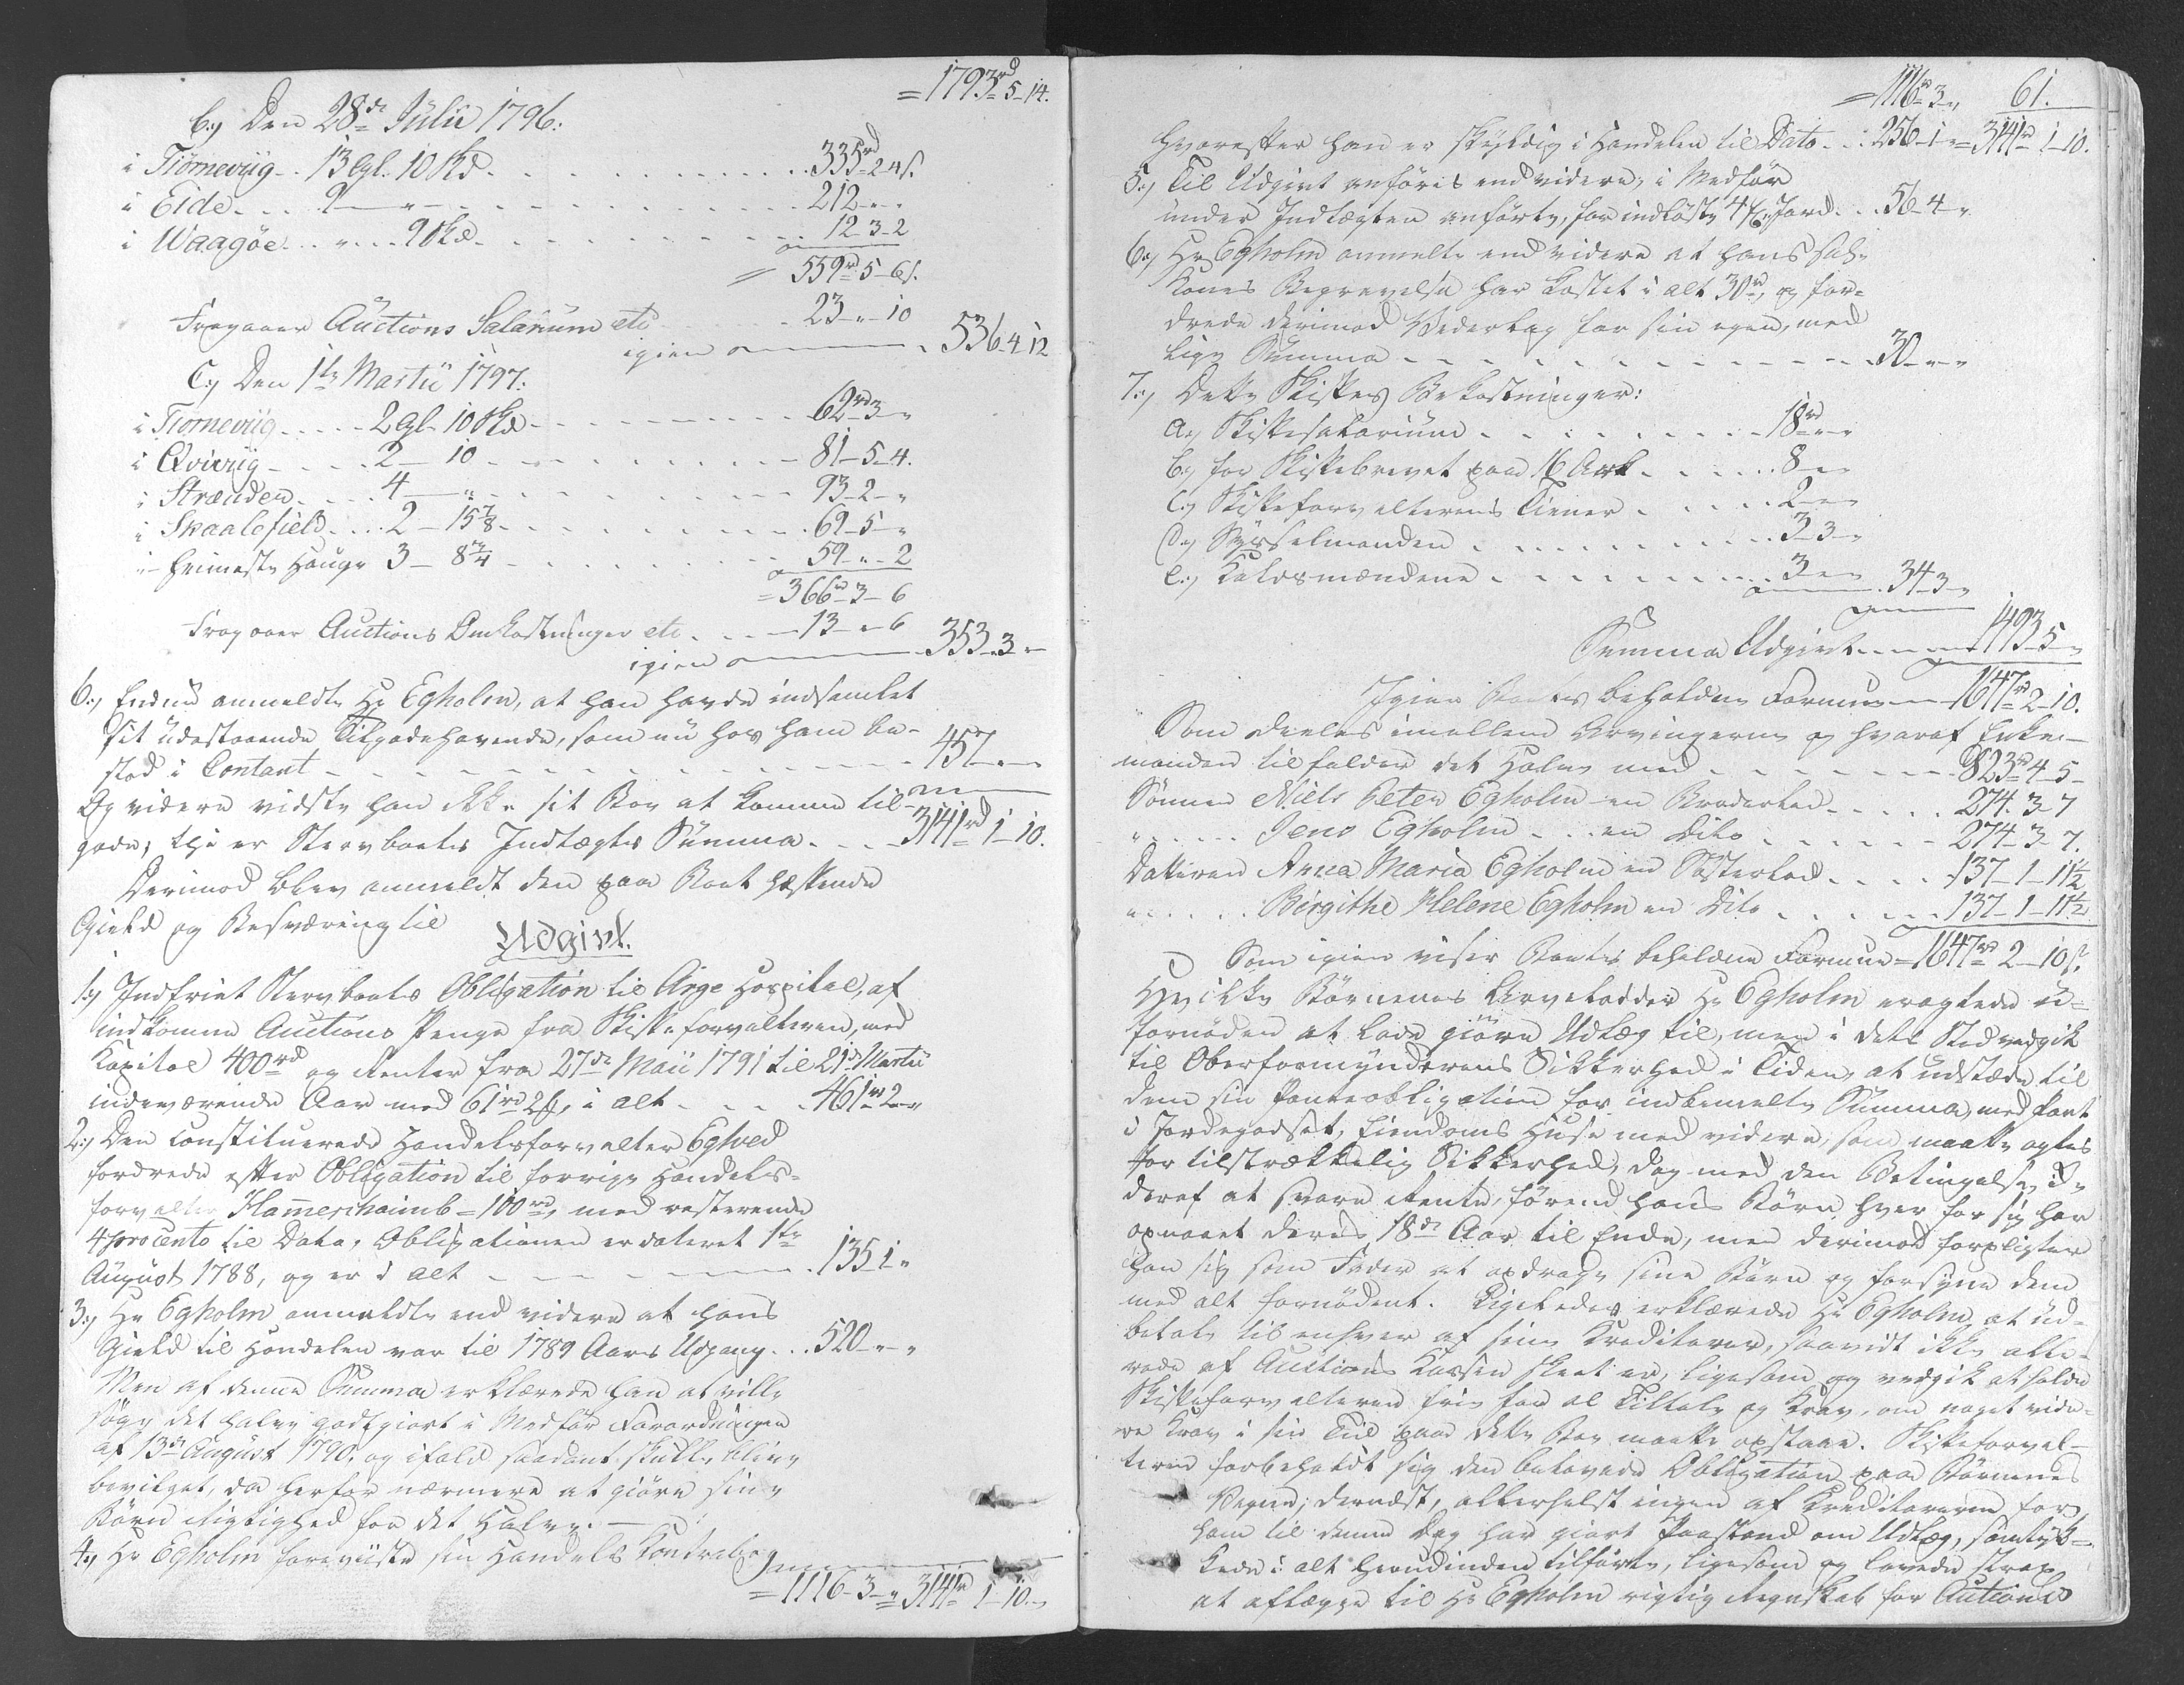 = 1793rd 5-14.
b,) Den 28de Julii 1796:
i Tiörneviig.. 13 Gl. 10 Skd. . . . . 335rd 2 4 s.
i Eide . . . 9 — " — . . . . 212 " "
i Waagöe . . " . . 9 Skd. . . . . 12-3-2
= 559rd 5-6 s.
Fragaaer Auctions Salarium etc . . . 23-"-10
igien . . . 536-4 12
C,) Den 1te Martii 1797:
i Tiörneviig . . . . 2 Gl. 10 Skd . . . . 62rd 3-"
i Qviviig . . . . 2 — 10 . . . . 81-5-4.
i Strænder . . . . 4 — " . . . . 93-2-"
i Skaalefield . . . . 2 - 15 7/8 . . . . 69-5-"
i heimeste Hauge 3 — 8 3/4 . . . . 59-"-2
= 366rd 3-6
Fragaaer Auctions Omkostninger etc . . . . 13-"-6
igien . . . 353-3-"
6,) Endnu anmeldte Hr Egholm, at han havde indsamlet
sit udestaaende Tilgodehavende, som nu hos ham be-
stod i Contant . . . . 457-"-"
Og videre vidste han ikke sit Boe at komme til-
gode; thi er Stervboets Indtægts Summa . . . 3141rd 1-10.
Derimod blev anmeldt den paa Boet hæftende
Gield og Besværing til
Udgivt.
1,) Indfriet Stervboets Obligation til Arge Hospital, af
indkomne Auctions Penge fra Skifteforvalteren, med
Kapital 400rd og Renter fra 27de Maii 1791 til 21de Martii
indeværende Aar med 61rd 2 s, i alt . . . . 461rd 2-"
2,) Den constituerede Handelsforvalter Egtved
fordrede efter Obligation til forrige Handels-
forvalter Hamerschaimb = 100rd, med resterende
4 procento til Dato, Obligationen er dateret 1te
August 1788, og er i alt . . . . 135 1 "
3,) Hr Egholm anmeldte end videre at hans
Gield til Handelen var til 1789 Aars Udgang . . . 520-"-"
Men af denne Summa erklærede han at ville
söge det halve godtgiort i Medför Forordningen
af 13de August 1790, og ifald saadant skulle blive
bevilget, da herfor nærmere at giöre sine
Börn Rigtighed for det Halve. —
4,) Hr Egholm foreviiste sin Handels Contrabog
= 1116-3-" = 3141rd 1-10.
= 1116rd 3 " 61.
hvorefter han er skyldig i Handelen til Dato . . 256-1-" = 3141rd 1-10.
5,) Til Udgivt anföres end videre, i Medför
under Indtægten anförte, for indlöste 4 Jord . . . 56-4-"
6,) Hr Egholm anmelte end videre at hans sal.
Kones Begravelse har kostet i alt 30rd, og for-
drede derimod Vederlag for sin egen, med
lige Summa . . . . 30-"-"
7,) Dette Skiftes Bekostninger:
a,) Skiftesalarium . . . . 18rd " "
b,) for Skiftebrevet paa 16 Ark . . . . 8-"-"
c,) Skifteforvalterens Tiener . . . . 2-"-"
d,) Sysselmanden . . . . 3-3-"
e,) Kaldsmændene . . . . 3-"-" 34-3-"
Summa Udgivt . . . . 1493-5-"
Igien Boets beholdne Formue — 1647rd 2-10.
Som deeles imellem Arvingerne og hvoraf Enke-
manden tilfalder det Halve med . . . . 823rd 4-5-
Sönnen Niels Peter Egholm en Broderlod . . . . 274.3-7
" . . . . Jens Egholm . . . en Dito . . . . 274-3-7.
Datteren Anna Maria Egholm en Sösterlod . . . . 137-1-11 1/2
" . . . . Birgithe Helene Egholm en Dito . . . . 137-1-11 1/2
Som igien viser Boets beholdne Formue = 1647rd 2-10 s.
Hvilke Börnenes Arvelodder Hr Egholm eragtede u-
fornöden at lade giöre Udlæg til, men i dets Sted vedgik
til Oberformynderens Sikkerhed i Tiden, at udstæde til
dem sin Panteobligation for indbemelte Summa, med Pant
i Jordegodset, Eiendoms Huse med videre, som maatte agtes
for tilstrækkelig Sikkerhed, dog med den Betingelse, ei
deraf at svare Rente, förend hans Börn hver for sig har
opnaaet deres 18de Aar til Ende, men derimod forpligter
han sig som Fader at opdrage sine Börn og forsyne dem
med alt fornödent. Ligeledes erklærede Hr Egholm, at ud-
betale til enhver af sine Kreditorer, saavidt ikke alle-
rede af Auctions Kassen skeet er, ligesom og vedgik at holde
Skifteforvalteren frie for al Tiltale og Krav, om noget vide-
re Krav i sin Tiid paa dette Boe maatte opstaae. Skifteforval-
teren forbeholdt sig den belovede Obligation paa Börnenes
Vegne; dernæst, allerhelst ingen af Kreditorerne for
ham til denne Dag har giort Paastand om Udlæg, samtyk-
kede i alt herudinden tilförte, ligesom og lovede strax
at aflægge til Hr Egholm rigtig Regnskab for Auctions